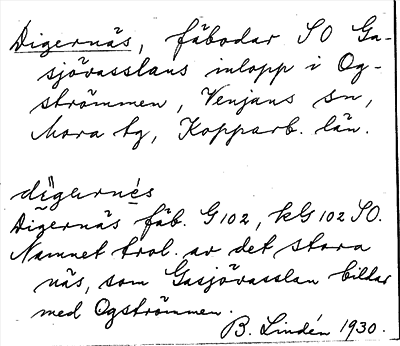 Digernäs, fäbodar SO Ga-
sjövasslans inlopp i Og-
strömmen, Venjans sn,
Mora tg, Kopparb. län.
dīgernés
Digernäs fäb. G102, kG102 SO.
Namnet trol. av det stora
näs, som Gasjövasslan bildar
med Ogströmmen.
B. Lindén 1930.